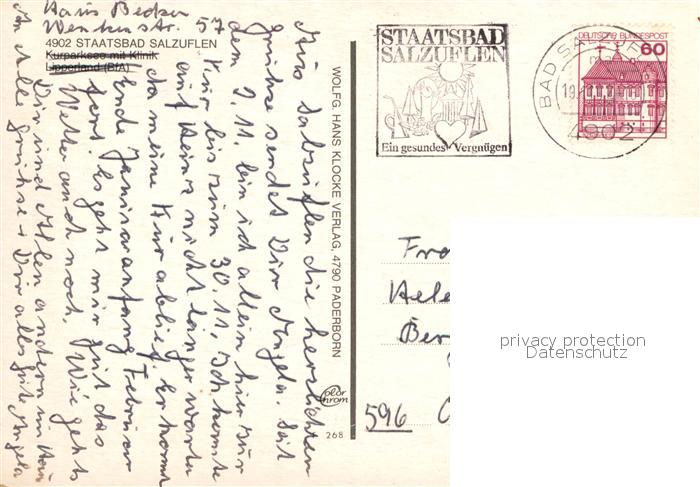 Haus Becker
Wenkenstr. 57
4902 STAATSBAD SALZUFLEN
Kurparksee mit Klinik
Lipperland (BfA)
Aus Salzuflen die herzlichsten
Grüsse sendet Dir Angela. Seit
dem 2.11. bin ich allein hier zur
Kur bis zum 30.11. Ich konnte
auf Heinz nicht länger warten
da meine Kur ablief. Er kommt
Ende Januar anfang Februar
fort. Es geht mir gut das
Wetter auch noch. Wie geht's
Dir und Allen andern im Haus
An Alle grüsse + Dir alles gute Angela
WOLFG. HANS KLOCKE VERLAG, 4790 PADERBORN
color
chrom
268
STAATSBAD
SALZUFLEN
Ein gesundes Vergnügen!
BAD SALZUFLEN
19.
4902
DEUTSCHE BUNDESPOST
60
Fra
Hele
Ber
596
privacy protection
Datenschutz